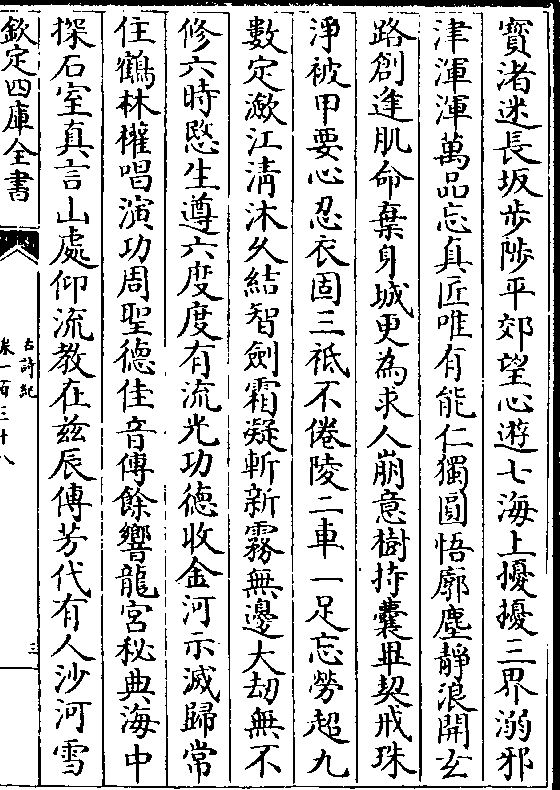 寳渚迷長坂步陟平郊望心遊七海上擾擾三界溺邪
津渾渾萬品忘真匠唯有能仁獨圓悟廓塵靜浪開𤣥
路創逢肌命棄身城更為求人崩意樹持囊畢契戒珠
淨被甲要心忍衣固三祗不倦陵二車一足忘勞超九
數定瀲江清沐久結智劍霜凝斬新霧無邊大劫無不
修六時愍生遵六度度有流光功德收金河示滅歸常
住鶴林權唱演功周聖德佳音傳餘響龍宮秘典海中
探石室真言山處仰流教在兹辰傳芳代有人沙河雪
欽定四庫全書
古詩紀
卷一百三十八
三